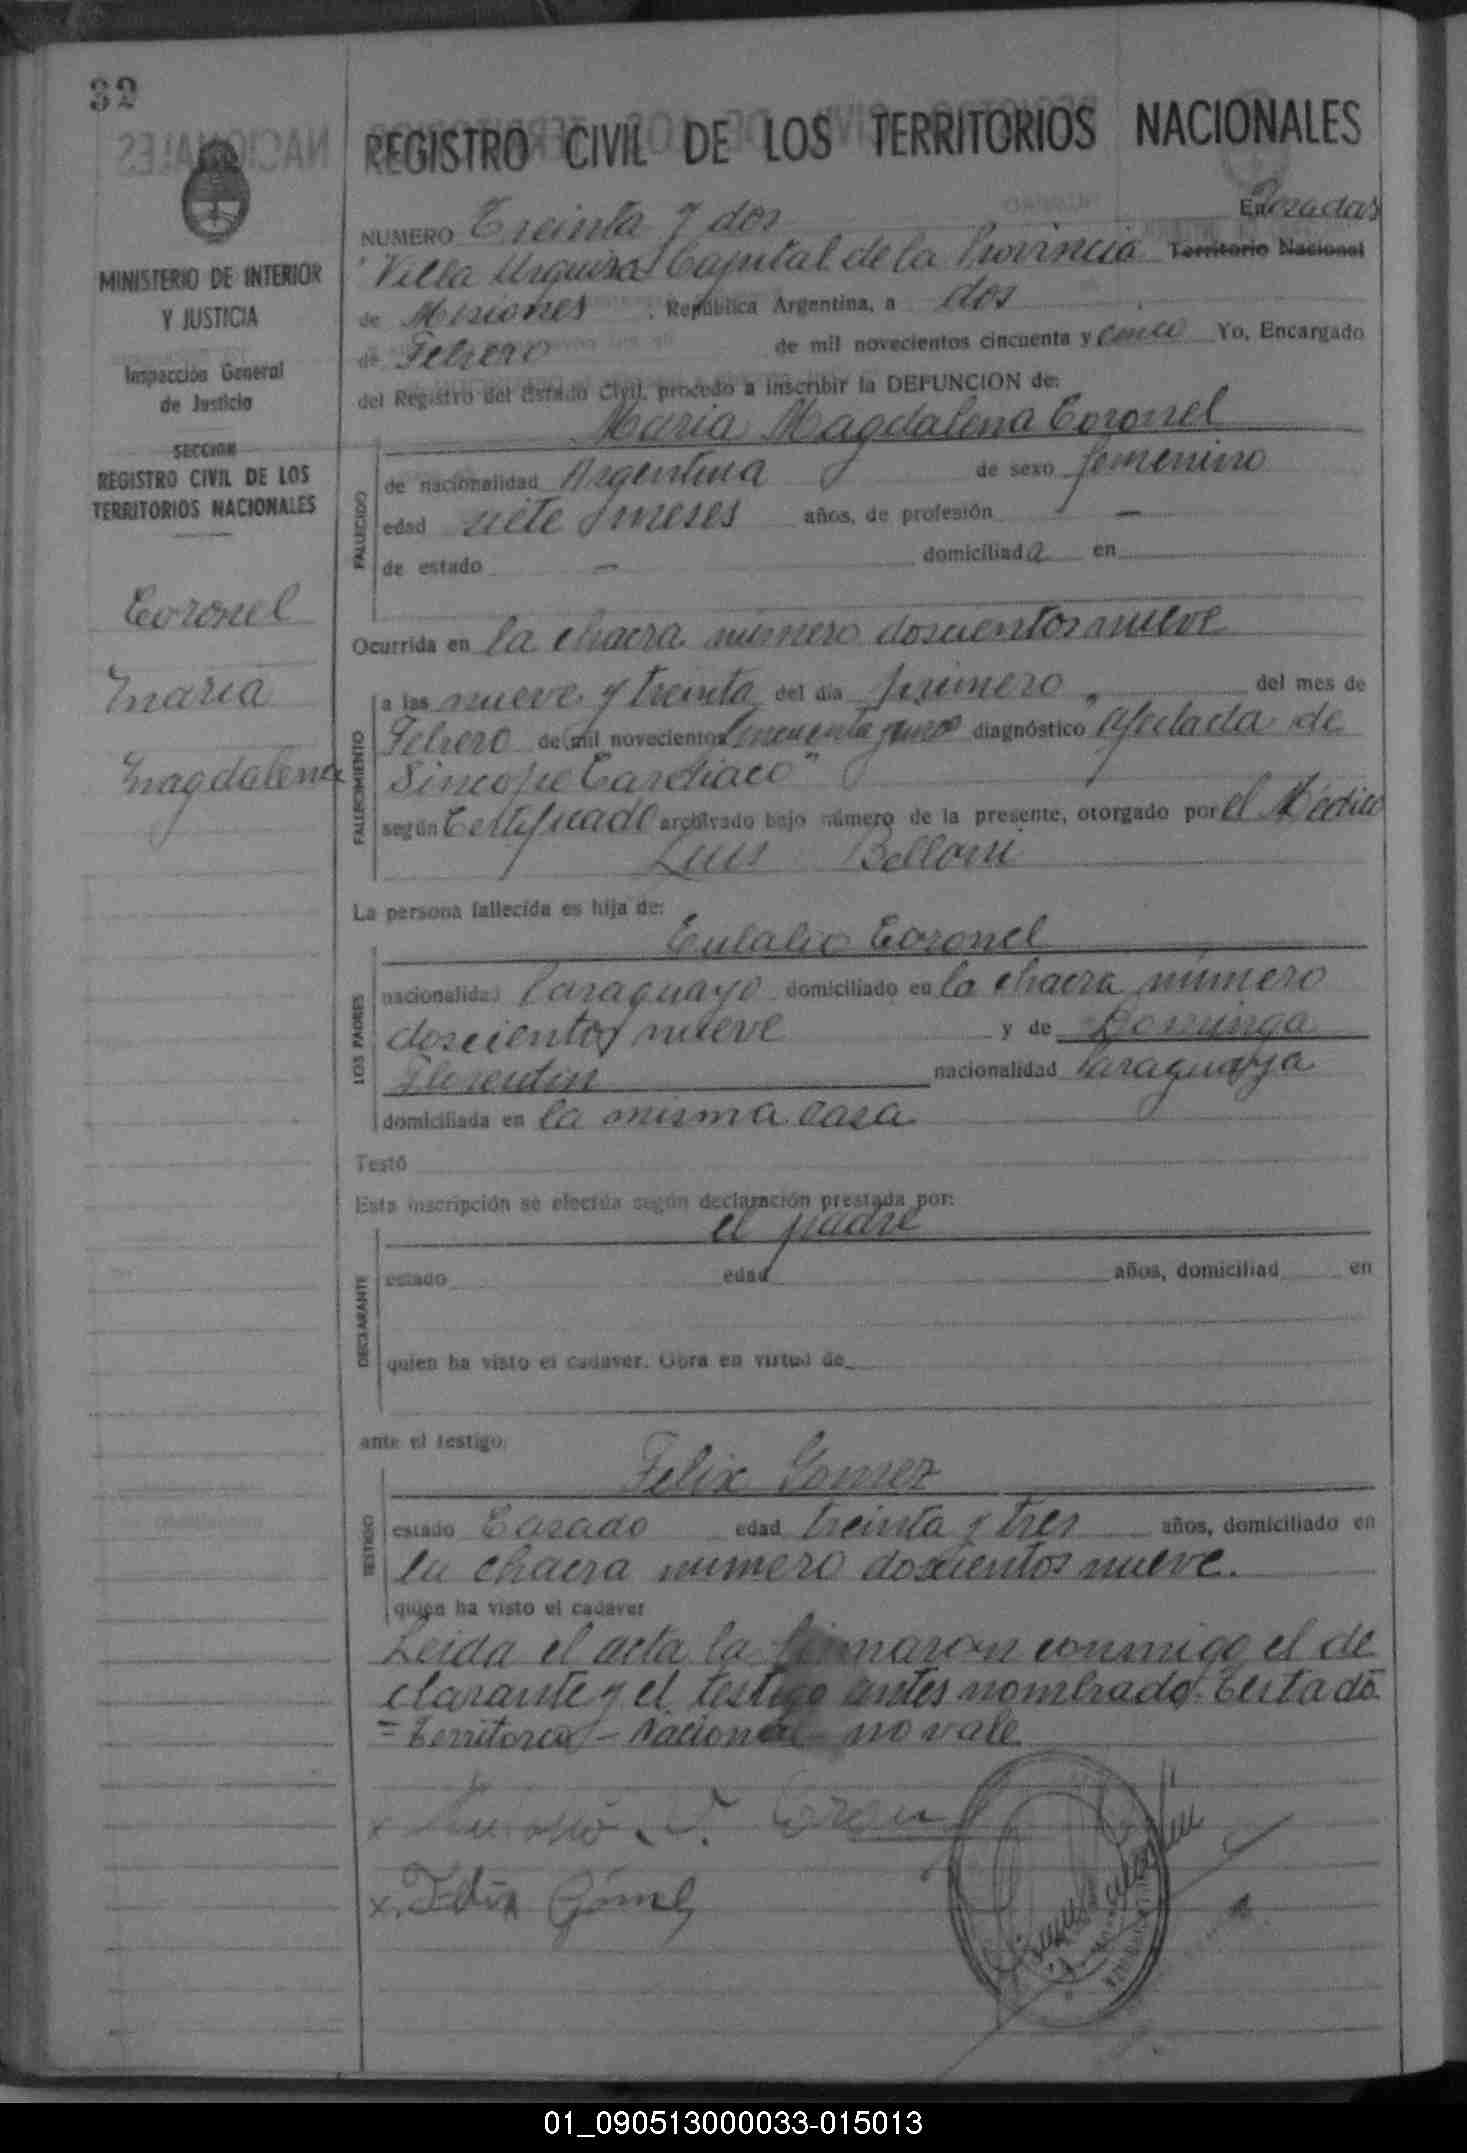 32
MINISTERIO DE INTERIOR
Y JUSTICIA
Inspección General
de Justicia
SECCION
REGISTRO CIVIL DE LOS
TERRITORIOS NACIONALES
Coronel
Maria
Magdalena
REGISTRO CIVIL DE LOS TERRITORIOS NACIONALES
NUMERO Treinta y dos En Posadas
Villa Urquiza Capital de la Provincia Territorio Nacional
de Misiones, República Argentina, a dos
de Febrero de mil novecientos cincuenta y cinco Yo, Encargado
del Registro del Estado Civil, procedo a inscribir la DEFUNCION de:
Maria Magdalena Coronel
FALLECIDO
de nacionalidad Argentina de sexo femenino
edad siete meses años, de profesión —
de estado — domiciliada en
Ocurrida en la chacra número doscientos nueve
FALLECIMIENTO
a las nueve y treinta del día primero del mes de
Febrero de mil novecientos cincuenta y diagnóstico "Afectada de
Sincope Cardiaco"
según Certificado archivado bajo número de la presente, otorgado por el Médico
Luis Belloni
La persona fallecida es hija de:
Eulalio Coronel
LOS PADRES
nacionalidad Paraguayo domiciliado en la chacra número
doscientos nueve y de Dominga
Florentin nacionalidad Paraguaya
domiciliada en la misma casa
Testó
Esta inscripción se efectúa según declaración prestada por:
el padre
DECLARANTE
estado edad años, domiciliad en
quien ha visto el cadaver. Obra en virtud de
ante el testigo:
Felix Gomez
TESTIGO
estado Casado edad treinta y tres años, domiciliado en
la chacra numero doscientos nueve.
quien ha visto el cadaver
Leida el acta la firmaron conmigo el de
clarante y el testigo antes nombrado. Testado
= Territorio - Nacional - no vale
x
x. Felix Gómez
01_090513000033-015013